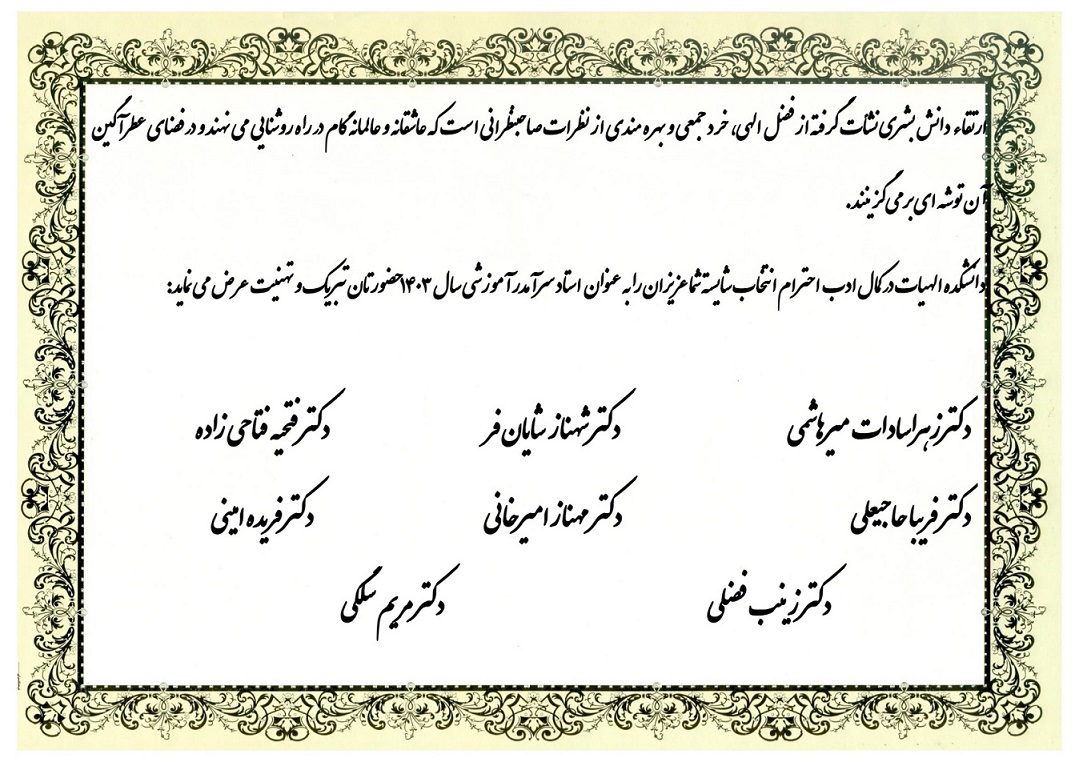 ارتقاء دانش بشری نشات گرفته از فضل الهی، خرد جمعی و بهره مندی از نظرات صاحبنظرانی است که عاشقانه و عالمانه گام در راه روشنایی می نهند و در فضای عطرآگین
آن توشه ای برمی گزینند.
دانشکده الهیات در کمال ادب احترام انتخاب شایسته شما عزیزان را به عنوان استاد سرآمد در آموزشی سال ۱۴۰۳ حضورتان تبریک و تهنیت عرض می نماید:
دکتر زهراسادات میرهاشمی دکتر شهناز شایان فر دکتر فتحیه فتاحی زاده
دکتر فریبا حاجیعلی دکتر مهناز امیرخانی دکتر فریده امینی
دکتر زینب فضلی دکتر مریم سلگی